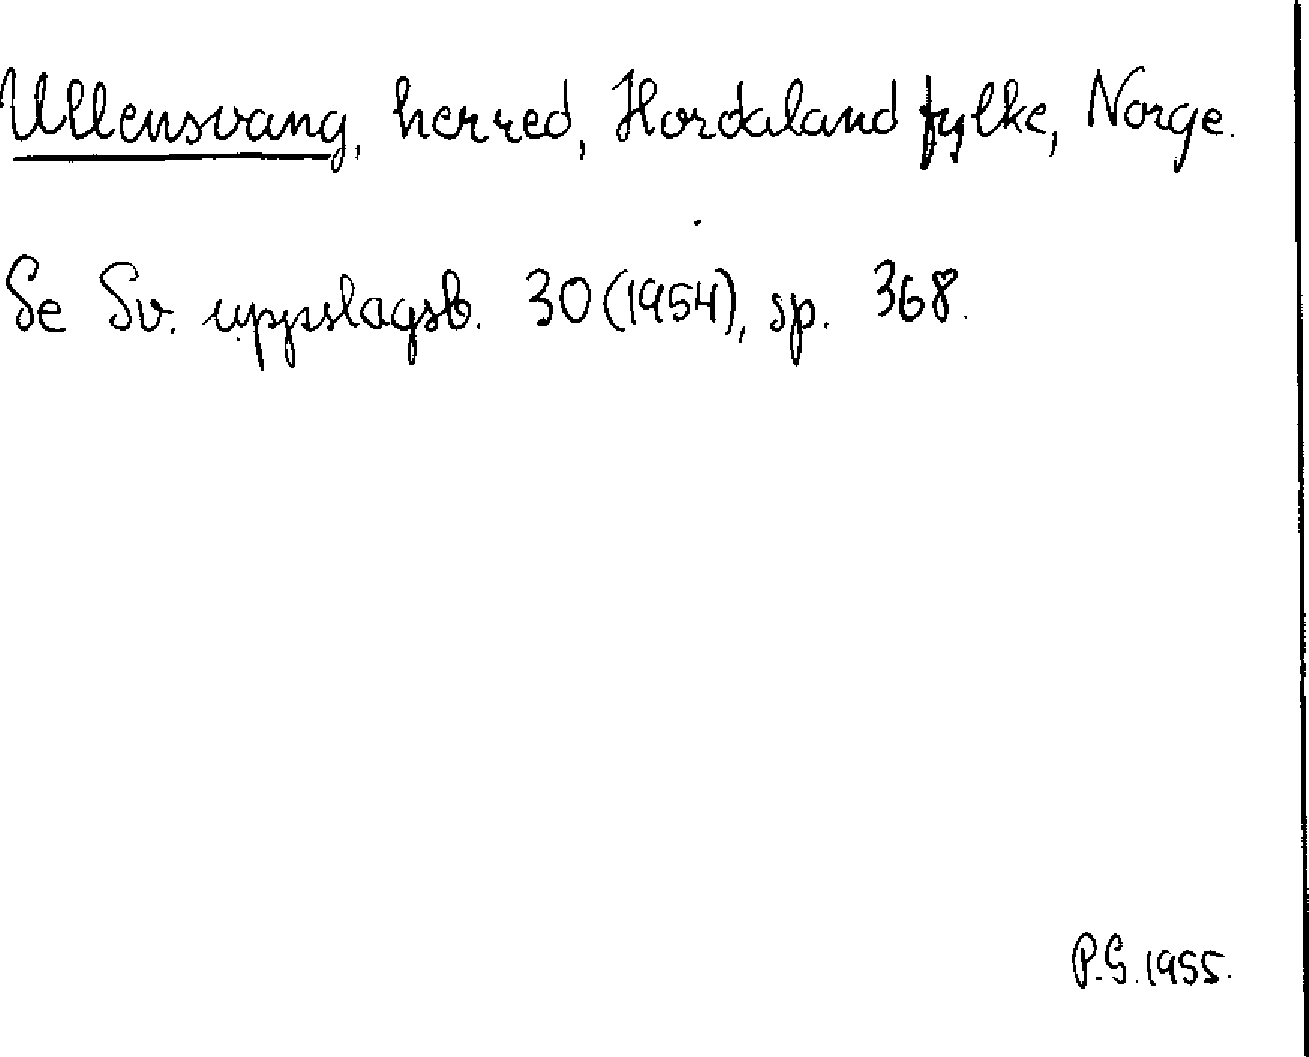 Ullensvang, herred, Hordaland fylke, Norge.
Se Sv. uppslagsb. 30 (1954), sp. 368.
P.G. 1955.